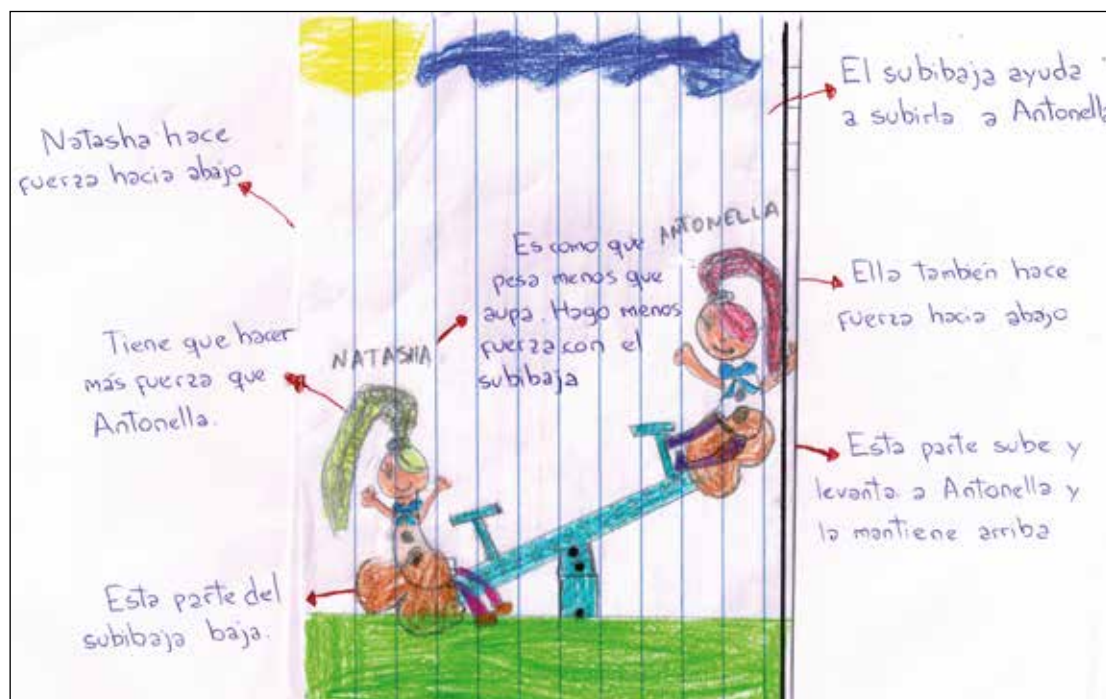 Natasha hace
fuerza hacia abajo
Tiene que hacer
más fuerza que
Antonella.
Esta parte del
subibaja baja.
NATASHA
Es como que
pesa menos que
aupa. Hago menos
fuerza con el
subibaja
ANTONELLA
El subibaja ayuda
a subirla a Antonella
Ella también hace
fuerza hacia abajo
Esta parte sube y
levanta a Antonella y
la mantiene arriba